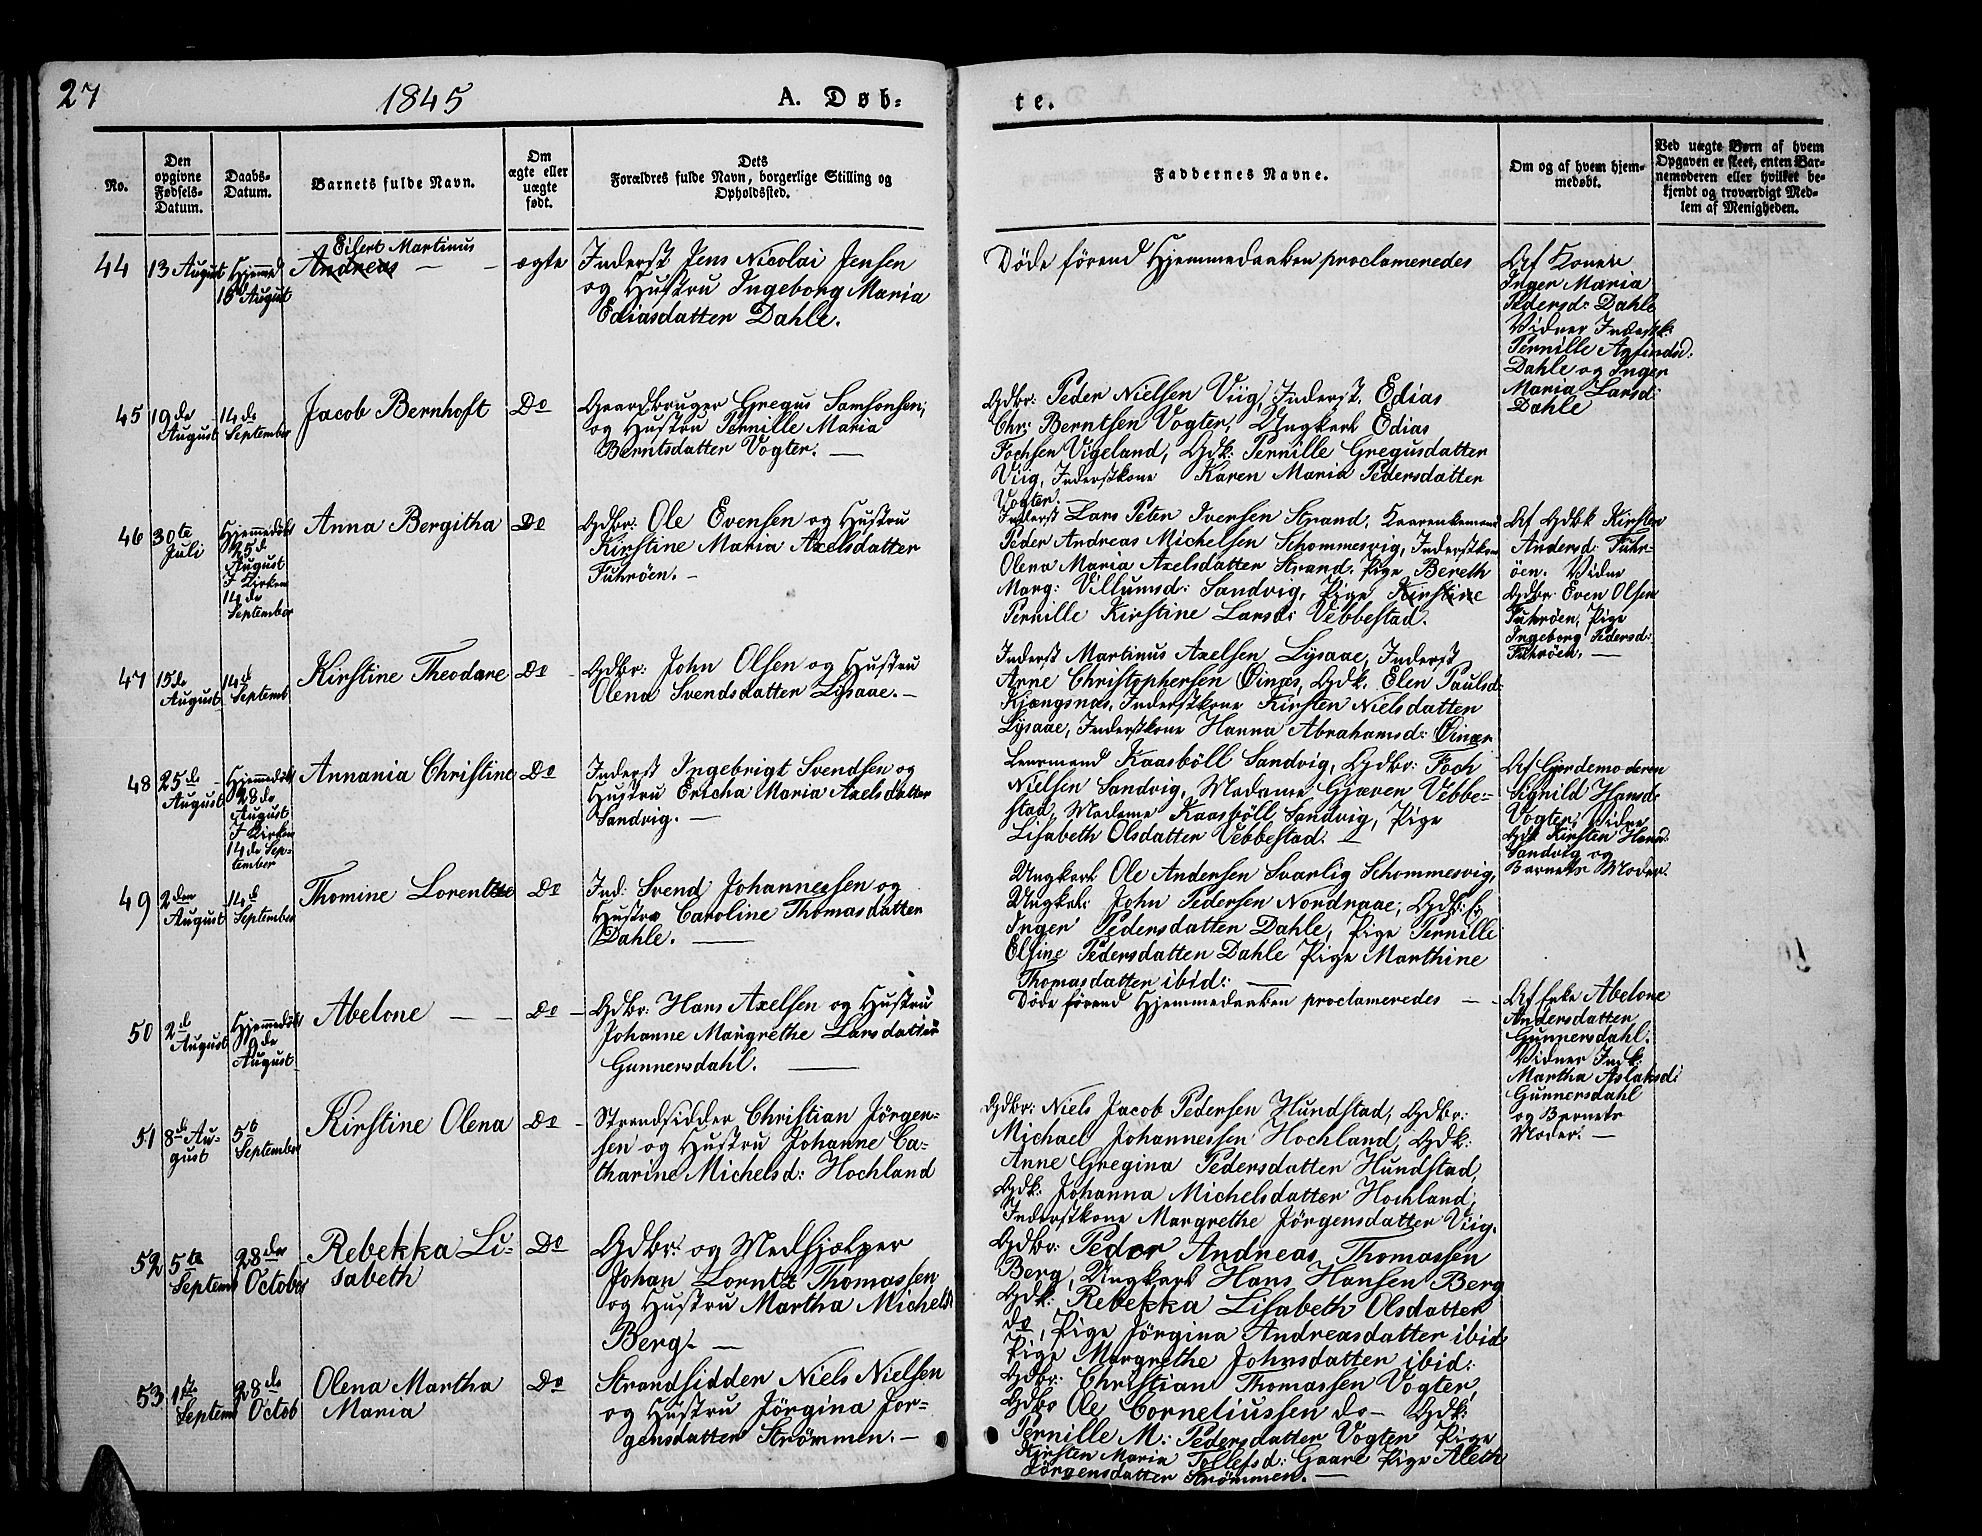 27
1845
A. Døb=
te.
No.
Den
opgivne
Fødsels-
Datum.
Daabs-
Datum.
Barnets fulde Navn.
Om
ægte eller
uægte
født.
Dets
Forældres fulde Navn, borgerlige Stilling og
Opholdssted.
Faddernes Navne.
Om og af hvem hjem-
medøbt.
Ved uægte Børn af hvem
Opgaven er skeet, enten Bar-
nemoderen eller hvilket be-
kjendt og troværdigt Med-
lem af Menigheden.
44
13 August
Hjemmed
16 August
Eilert Martinus
Andreas — —
ægte
Inderst Jens Nicolai Jensen
og Hustru Ingeborg Maria
Ediasdatter Dahle.
Døde førend Hjemmedaaben proclameredes
Af Konen
Inger Maria
Pedersd: Dahle
Vidner Inderstk:
Pernille
Dahle og Inger
Maria Larsd:
Dahle
45
19de
August
14de
September
Jacob Bernhoft
Do
Gaardbruger Gregus Samsonsen,
og Hustru Pernille Maria
Berntsdatter Vogter. —
Gdbr: Peder Nielsen Viig, Inderst. Edias
Chr: Berntsen Vogter, Ungkarl Edias
Fochsen Vigeland, Gdk: Pernille Gregusdatter
Viig, Inderstkone Karen Maria Pedersdatter
Vogter.
46
30te
Juli
Hjemmedøbt
25d
August
I Kirken
14de
September
Anna Bergitha
Do
Gdbr: Ole Evensen og Hustru
Kirstine Maria Axelsdatter
Fuhrøen. —
Inderst Lars Peter Iversen Strand,
Peder Andreas Michelsen Schommesvig, Inderstkon
Olena Maria Axelsdatter Strand. Pige Bereth
Marg: Villumsd: Sandvig, Pige Kirstine
Pernille Kirstine Larsd: Vebbestad.
Af Gdbk Kirsten
Andersd: Fuhr-
øen. Vidne
Gdbr: Even Olsen
Fuhrøen, Pige
Ingeborg Pedersd:
Fuhrøen. —
47
15de
August
14d
Septemb
Kirstine Theodare
Do
Gdbr: John Olsen og Hustru
Olena Svendsdatter Lysaae. —
Inderst Martinus Axelsen Lysaae, Inderst
Arne Christophersen Øinæs, Gdk. Elen Paulsd:
Kjængsnæs, Inderstkone Kirsten Nielsdatter
Lysaae, Inderstkone Hanna Abrahamsd: Øinæs
48
25de
August
Hjemmedøbt
28de
August
I Kirken
14de Sep-
tember
Annania Christine
Do
Inderst Ingebrigt Svendsen og
Hustru Ericha Maria Axelsdatter
Sandvig. —
Lensmand Kaasböll Sandvig, Gdbr: Foch
Nielsen Sandvig, Madame Gjæver Vebbe-
stad, Madame Kaasböll Sandvig, Pige
Lisabeth Olsdatter Vebbestad. —
Af Gjordemoderen
Signild Hansd:
Vogter, Vidne
Gdk Kirsten
Sandvig og
Barnets Moder.
49
2den
August
14d
September
Thomine Lorentze
Do
Ind: Svend Johannessen og
Hustru Caroline Thomasdatter
Dahle. —
Ungkarl Ole Andersen Svarlig Schommesvig,
Ungkel: John Pedersen Nordraae, Gdbr:
Inger Pedersdatter Dahle, Pige Pernille
Elsine Pedersdatter Dahle Pige Marthine
Thomasdatter ibid: —
50
2d
August
Hjemmedøbt
9de
August
Abelone — —
Do
Gdbr: Hans Axelsen og Hustru
Johanne Margrethe Larsdatter
Gunnersdahl. —
Døde førend Hjemmedaaben proclameredes —
Af Enke Abelone
Andersdatter
Gunnersdahl.
Vidner Indk:
Martha Aslaksd:
Gunnersdahl
og Barnets
Moder. —
51
8de Au-
gust
5t
September
Kirstine Olena
Do
Strandsidder Christian Jörgen-
sen og Hustru Johanne Ca-
tharine Michelsd: Hochland
Gdbr: Niels Jacob Pedersen Hundstad, Gdbr:
Michael Johannessen Hochland, Gdk:
Anne Gregina Pedersdatter Hundstad,
Gdk: Johanna Michelsdatter Hochland,
Inderstkone Margrethe Jörgensdatter Viig.
52
5te
Septemb
28de
October
Rebekka Li-
sabeth
Do
Gdbr: og Medhjælper
Johan Lorntz Thomassen
og Hustru Martha Michelsd
Berg. —
Gdbr: Peder Andreas Thomassen
Berg, Ungkarl Hans Hansen Berg
Gdk: Rebekka Lisabeth Olsdatter
do, Pige Jörgina Andreasdatter ibid
Pige Margrethe Johnsdatter ibid:
53
1ste
Septemb
28de
Octob
Olena Martha
Maria
Do
Strandsidder Niels Nielsen
og Hustru Jörgina Jör-
gensdatter Strømmen. —
Gdbr: Christian Thomassen Vogter,
Gdbr Ole Corneliussen do — Gdk:
Pernille M: Pedersdatter Vogter Pige
Kirsten Maria Tollefsd: Gaare Pige Aleth
Jörgensdatter Strømmen. —